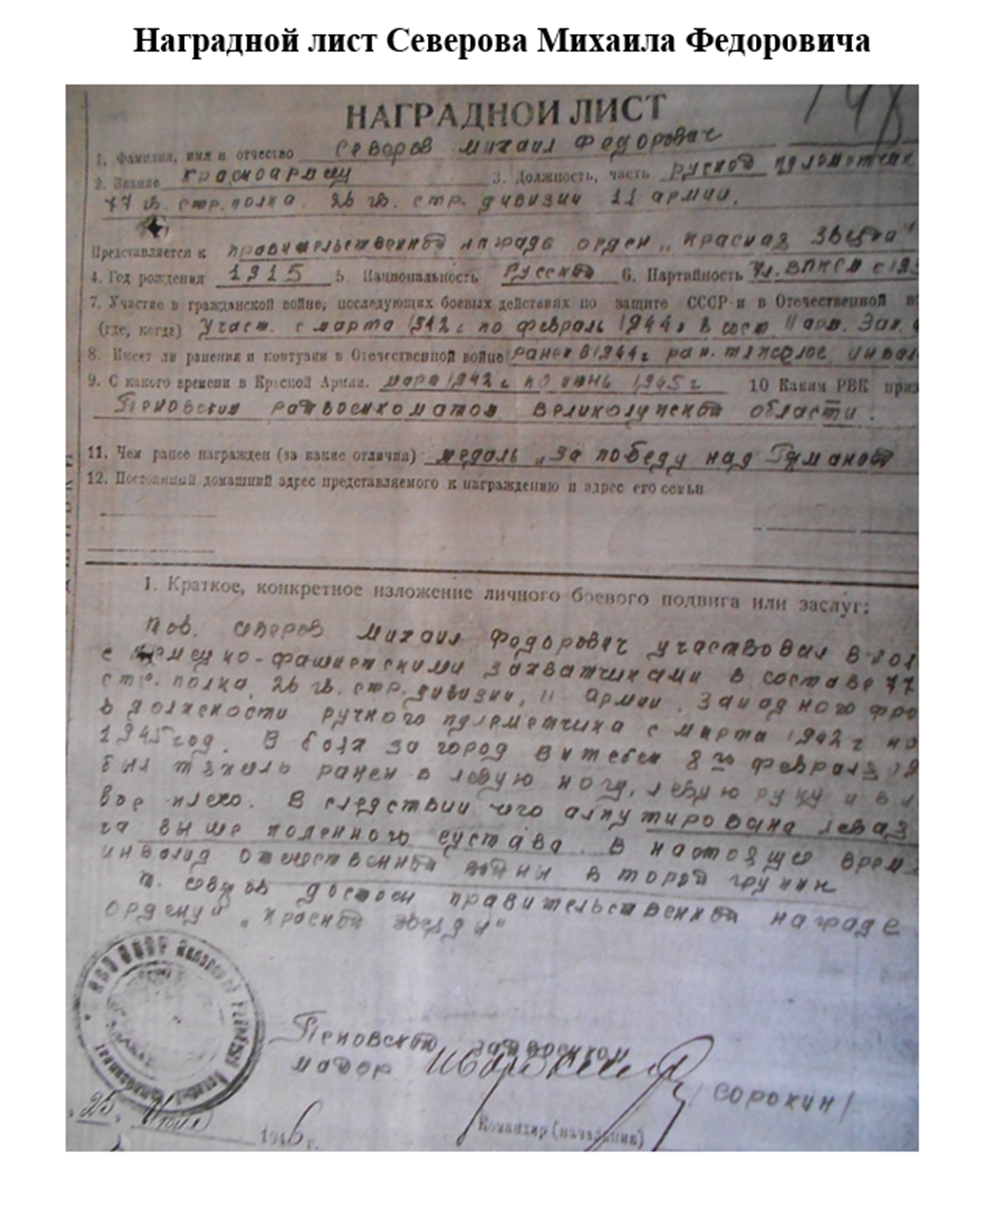 Наградной лист Северова Михаила Федоровича
НАГРАДНОЙ ЛИСТ
1. Фамилия, имя и отчество Северов Михаил Федорович
2. Звание Красноармеец 3. Должность, часть ручной пулеметчик
77 гв. стр. полка, 26 гв. стр. дивизии 11 армии.
Представляется к правительственной награде орден „Красная Звезда"
4. Год рождения 1915 5. Национальность Русский 6. Партийность Чл. ВЛКСМ с 193
7. Участие в гражданской войне, последующих боевых действиях по защите СССР и в Отечественной в
(где, когда) Участ. с марта 1942 г по февраль 1944 г в сост. 11 арм. Зап.
8. Имеет ли ранения и контузии в Отечественной войне ранен в 1944 г ран. тяжелое, инвал
9. С какого времени в Красной Армии. март 1942 г по июнь 1945 г 10 Каким РВК приз
Пеновским райвоенкоматом Великолукской области.
11. Чем ранее награжден (за какие отличия) медаль „За победу над Германией
12. Постоянный домашний адрес представляемого к награждению и адрес его семьи
1. Краткое, конкретное изложение личного боевого подвига или заслуг:
Тов. Северов Михаил Федорович участвовал в
с немецко-фашистскими захватчиками в составе 77
стр. полка, 26 гв. стр. дивизии, 11 армии, Западного фро
в должности ручного пулеметчика с марта 1942 г по
1945 год. В боях за город Витебск 8го февраля 19
был тяжело ранен в левую ногу, левую руку и в л
вое плечо. В следствии чего ампутирована левая
га выше коленного сустава. В настоящее врем
инвалид отечественной войны второй группы
т. Северов достоен правительственной награде
ордену „Красной звезды"
Пеновский райвоенком
майор /Сорокин/
Командир (начальник)
25 1946 г.